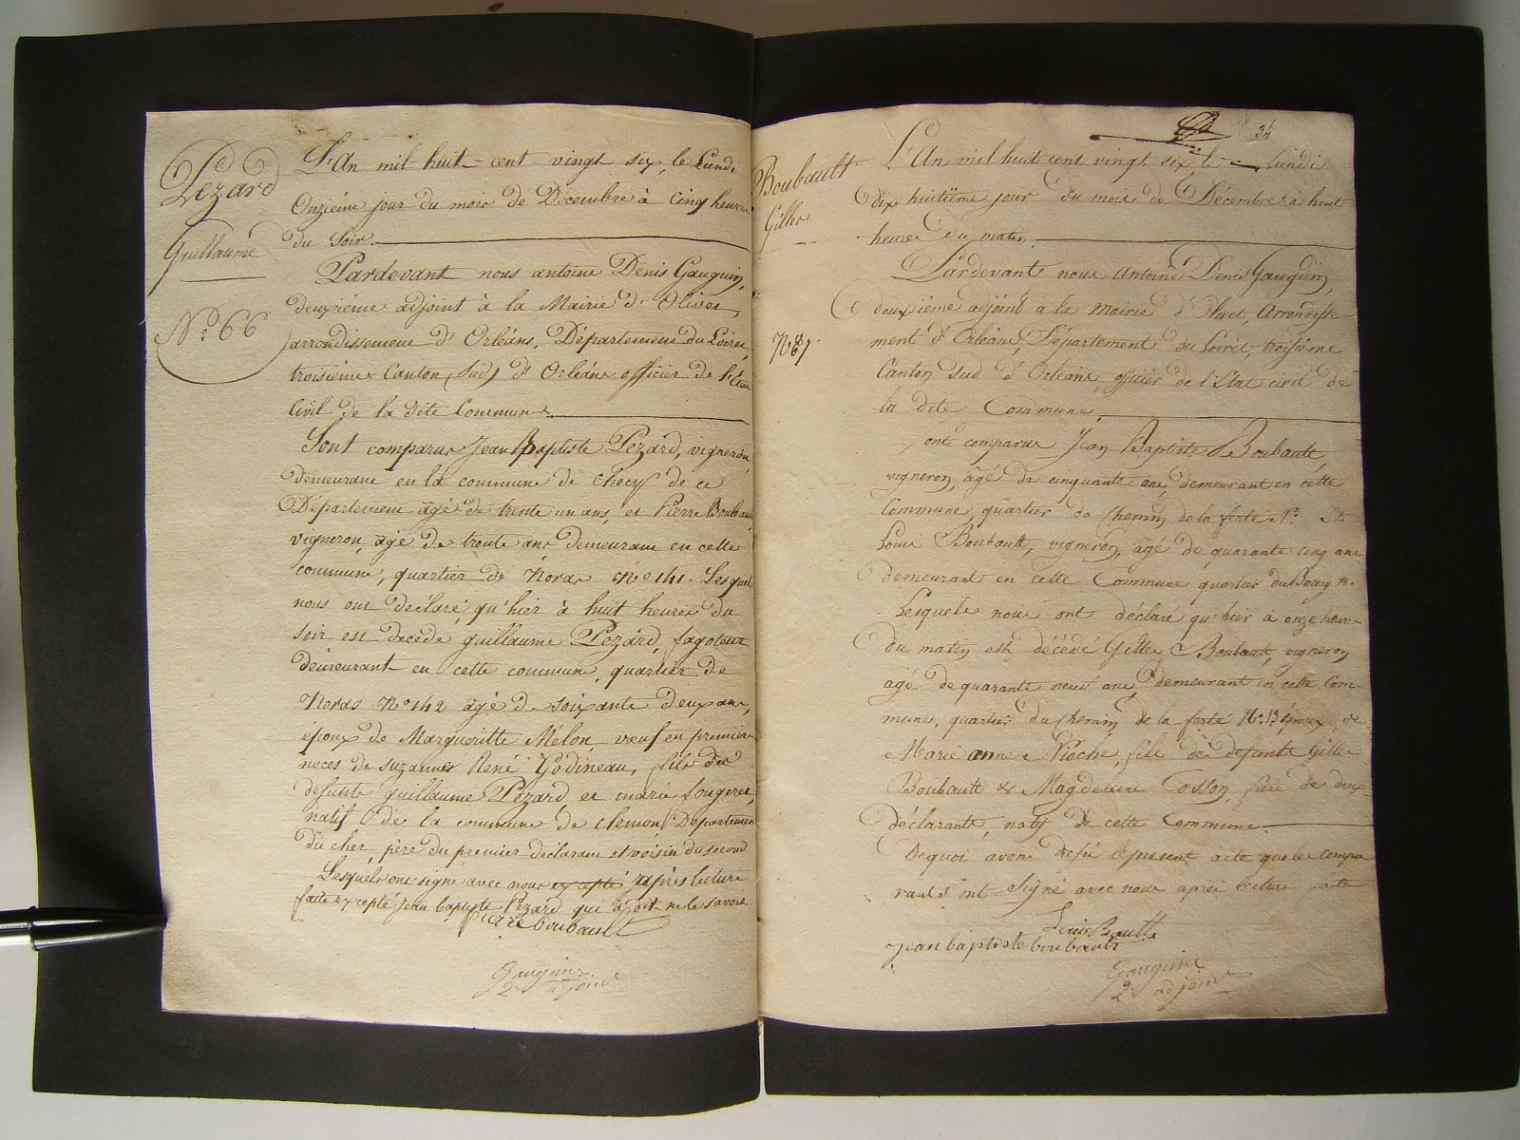 Pezard
Guillaume
N.° 66
L'An mil huit-cent vingt six, le Lundi
Onzième jour du mois de Décembre à Cinq heures
du Soir.
Pardevant nous antoine Denis Gauguin,
deuxième adjoint à la Mairie d'Olivet,
arrondissement d'Orléans, Département du Loiret,
troisième Canton (Sud) d'Orléans officier de l'État
Civil de la dite Commune
Sont comparus Jean Baptiste Pezard, vigneron,
demeurant en la commune de Checy de ce
Département âgé de trente un ans, et Pierre Boubault
vigneron, âgé de trente ans demeurant en cette
commune, quartier de Noras N° 141. Lesquels
nous ont déclaré, qu'hier à huit heures du
soir est décédé guillaume Pezard, fagoteur
demeurant en cette commune, quartier de
Noras N° 142 âgé de soixante deux ans,
époux de Margueritte Mélon, veuf en premiere
noces de suzanne René Godineau, fils de
defunts guillaume Pezard et marie Lougeret,
natif de la commune de clemont Departement
du cher, père du premier déclarant et voisin du second
Lesquels ont signé avec nous excepté après lecture
faite excepté jean baptiste Pezard qui a dit ne le savoir
Pierre boubault
Gauguin
2e adjoint
34
Boubault
Gilles
N° 67
L'An mil huit cent vingt six, le Lundi
dix huitième jour du mois de Décembre à huit
heures du matin.
Pardevant nous Antoine Denis Gauguin,
deuxième adjoint à la Mairie d'Olivet, Arrondisse-
ment d'Orléans, Département du Loiret, troisième
Canton Sud d'Orléans, officier de l'État civil de
la dite Commune,
ont comparus Jean Baptiste Boubault,
vigneron, âgé de cinquante ans, demeurant en cette
Commune, quartier du Chemin de la ferté N.°
Louis Boubault, vigneron, âgé de quarante cinq ans
demeurant en cette Commune quartier du Bourg N.
Lesquels nous ont déclaré qu'hier à onze heures
du matin est décédé Gilles Boubault, vigneron
âgé de quarante neuf ans, demeurant en cette Com-
mune, quartier du Chemin de la ferté N.° 13 époux de
Marie anne Pioche, fils de defunts Gilles
Boubault & Magdeleine Coston, frère de deux
déclarants, natif de cette Commune.
De quoi avons rédigé le présent acte que les compa-
rants ont Signé avec nous après lecture faite
Louis Boubault
jean baptiste boubault
Gauguin
2e adjoint